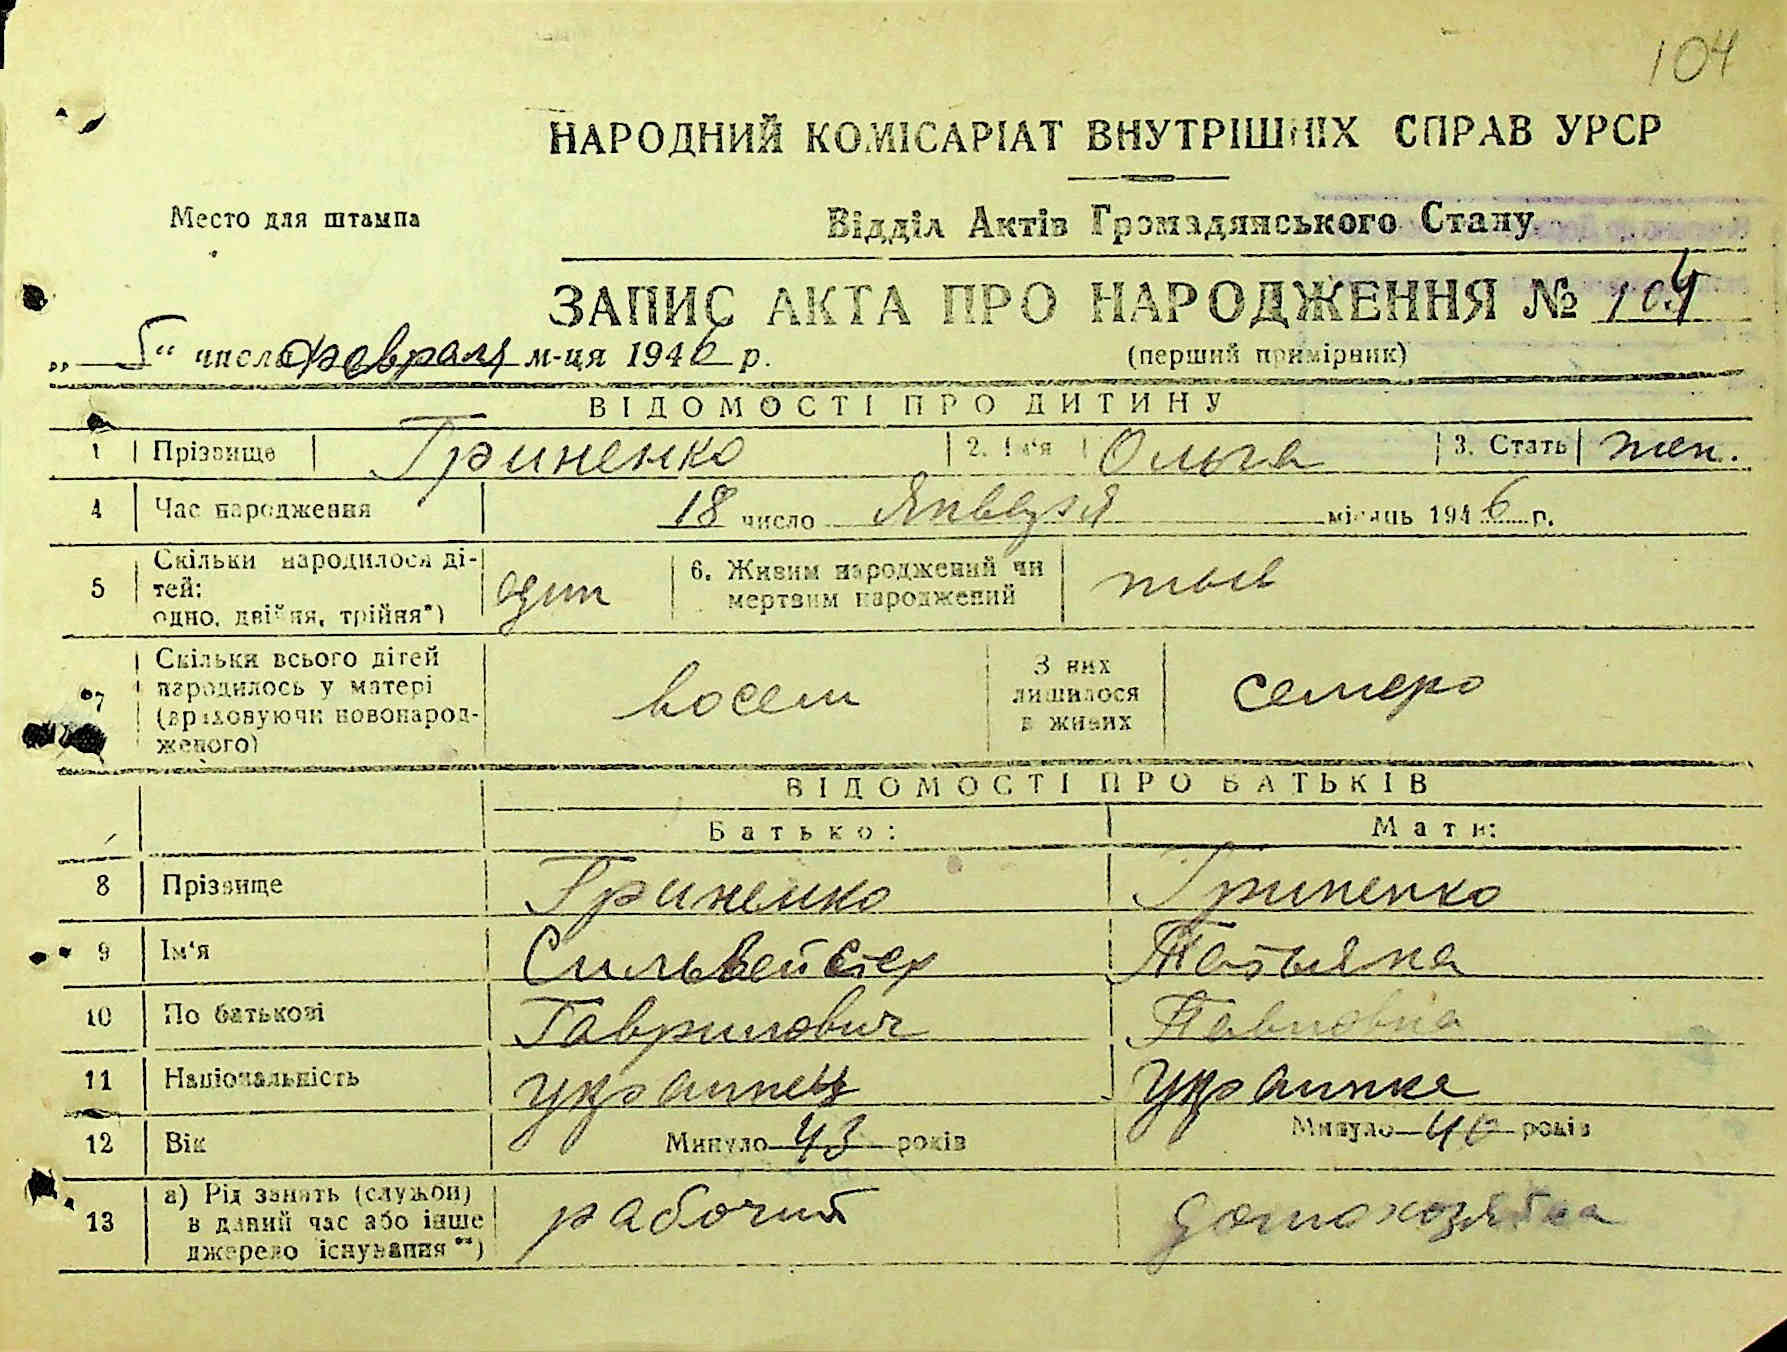 104
НАРОДНИЙ КОМІСАРІАТ ВНУТРІШНІХ СПРАВ УРСР
Место для штампа
Відділ Актів Громадянського Стану
ЗАПИС АКТА ПРО НАРОДЖЕННЯ № 104
„ 5 “ числа февраля м-ця 1946 р.
(перший примірник)
ВІДОМОСТІ ПРО ДИТИНУ
1 Прізвище Гриненко 2. Ім'я Ольга 3. Стать жен.
4 Час народження 18 число Января місяць 1946 р.
5 Скільки народилося ді-
тей:
одно, двійня, трійня*) один
6. Живим народжений чи
мертвим народжений
7 Скільки всього дітей
народилось у матері
(враховуючи новонарод-
женого) восем
З них
лишилося
в живих семеро
ВІДОМОСТІ ПРО БАТЬКІВ
Батько: Мати:
8 Прізвище Гриненко Гриненко
9 Ім'я Сильвейстер Татьяна
10 По батькові Гаврилович Павловна
11 Національність украинец украинка
12 Вік Минуло 43 років Минуло 40 років
13 а) Рід занять (служби)
в даний час або інше
джерело існування **) рабочий домохозяйка